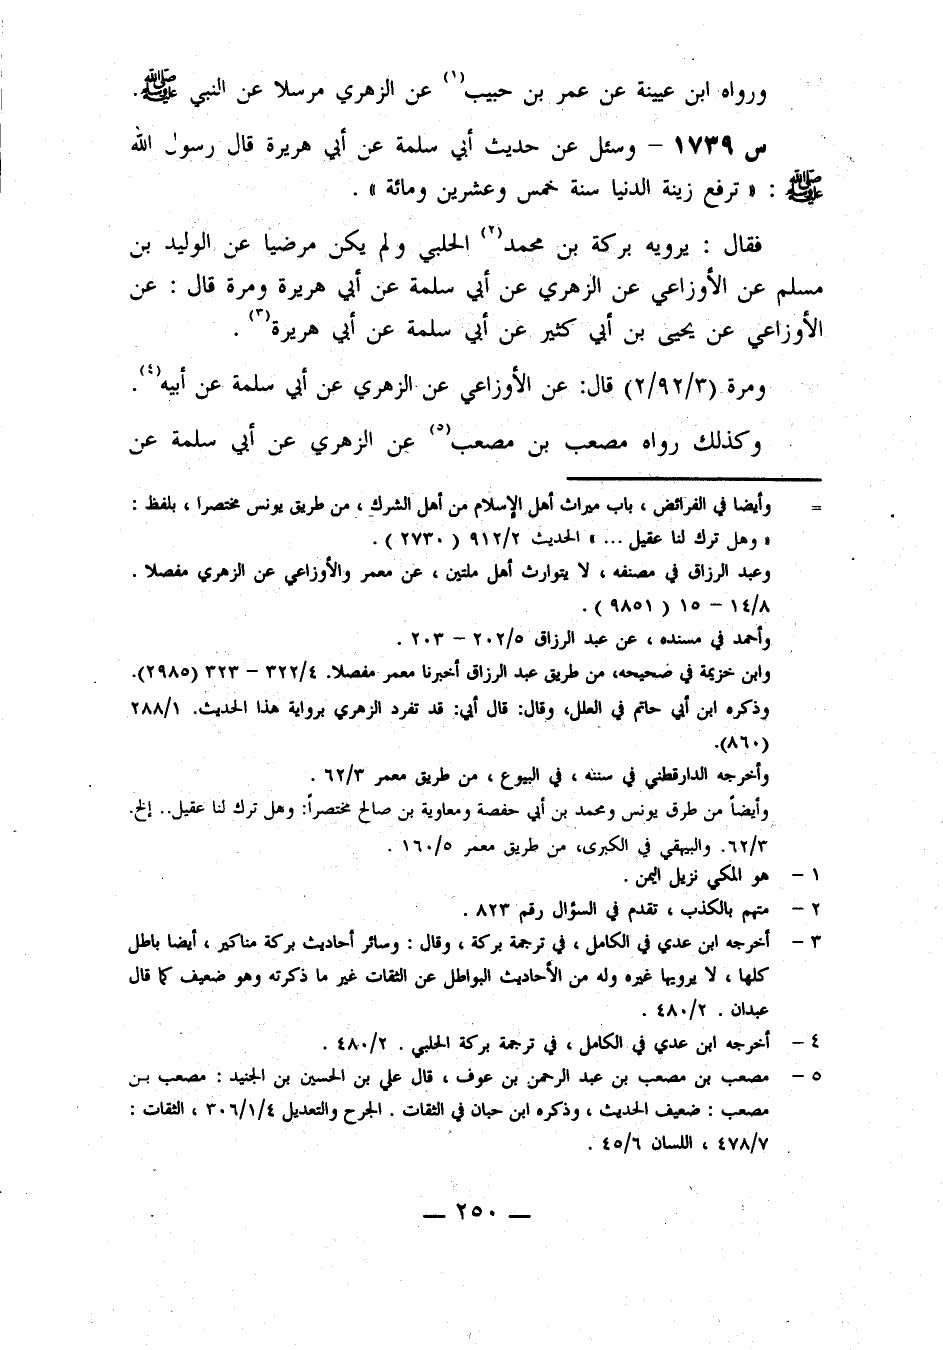 ورواه ابن عيينة عن عمر بن حبيب(١) عن الزهري مرسلا عن النبي ﷺ.
س ١٧٣٩ – وسئل عن حديث أبي سلمة عن أبي هريرة قال رسول الله
ﷺ : « ترفع زينة الدنيا سنة خمس وعشرين ومائة » .
فقال : يرويه بركة بن محمد(٢) الحلبي ولم يكن مرضيا عن الوليد بن
مسلم عن الأوزاعي عن الزهري عن أبي سلمة عن أبي هريرة ومرة قال : عن
الأوزاعي عن يحيى بن أبي كثير عن أبي سلمة عن أبي هريرة(٣) .
ومرة (٢/٩٢/٣) قال: عن الأوزاعي عن الزهري عن أبي سلمة عن أبيه(٤).
وكذلك رواه مصعب بن مصعب(٥) عن الزهري عن أبي سلمة عن
= وأيضا في الفرائض ، باب ميراث أهل الإسلام من أهل الشرك ، من طريق يونس مختصرا ، بلفظ :
« وهل ترك لنا عقيل ... » الحديث ٩١٢/٢ ( ٢٧٣٠ ) .
وعبد الرزاق في مصنفه ، لا يتوارث أهل ملتين ، عن معمر والأوزاعي عن الزهري مفصلا .
١٤/٨ – ١٥ ( ٩٨٥١ ) .
وأحمد في مسنده ، عن عبد الرزاق ٢٠٢/٥ – ٢٠٣ .
وابن خزيمة في صحيحه، من طريق عبد الرزاق أخبرنا معمر مفصلا. ٣٢٢/٤ – ٣٢٣ (٢٩٨٥).
وذكره ابن أبي حاتم في العلل، وقال: قال أبي: قد تفرد الزهري برواية هذا الحديث. ٢٨٨/١
(٨٦٠).
وأخرجه الدارقطني في سننه ، في البيوع ، من طريق معمر ٦٢/٣ .
وأيضاً من طرق يونس ومحمد بن أبي حفصة ومعاوية بن صالح مختصراً: وهل ترك لنا عقيل.. إلخ.
٦٢/٣. والبيهقي في الكبرى، من طريق معمر ١٦٠/٥ .
١ – هو المكي نزيل اليمن .
٢ – متهم بالكذب ، تقدم في السؤال رقم ٨٢٣ .
٣ – أخرجه ابن عدي في الكامل ، في ترجمة بركة ، وقال : وسائر أحاديث بركة مناكير ، أيضا باطل
كلها ، لا يرويها غيره وله من الأحاديث البواطل عن الثقات غير ما ذكرته وهو ضعيف كما قال
عبدان . ٤٨٠/٢ .
٤ – أخرجه ابن عدي في الكامل ، في ترجمة بركة الحلبي . ٤٨٠/٢ .
٥ – مصعب بن مصعب بن عبد الرحمن بن عوف ، قال علي بن الحسين بن الجنيد : مصعب بن
مصعب : ضعيف الحديث ، وذكره ابن حبان في الثقات . الجرح والتعديل ٣٠٦/١/٤ ، الثقات :
٤٧٨/٧ ، اللسان ٤٥/٦ .
— ٢٥٠ —